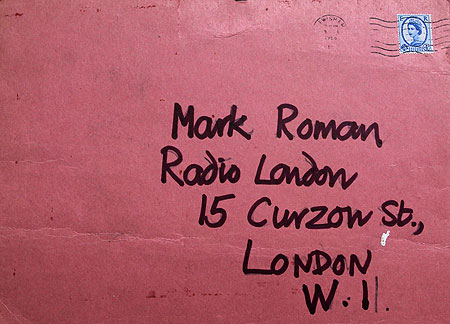 Mark Roman
Radio London
15 Curzon St.,
LONDON
W.1.